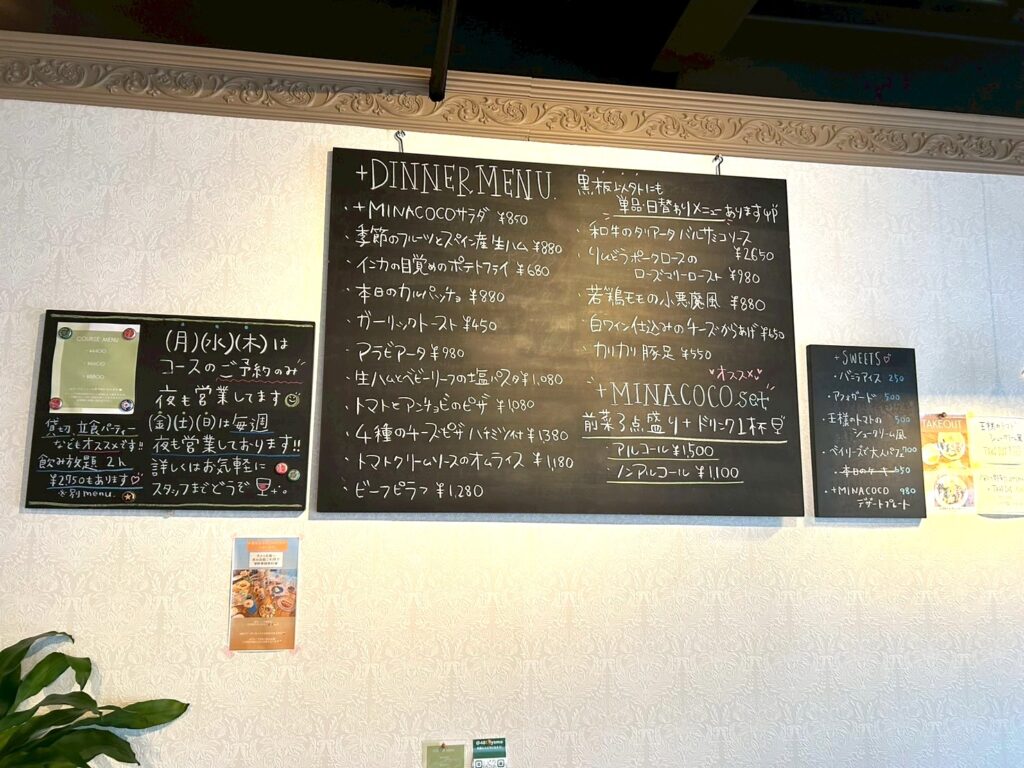 COURSE MENU
貸切、立食パーティー
などもオススメです!!
飲み放題 2h
¥2750もあります♡
※別menu.
(月)(水)(木)は
コースのご予約のみ
夜も営業してます
(金)(土)(日)は毎週
夜も営業しております!!
詳しくはお気軽に
スタッフまでどうぞ
+DINNER MENU.
・+MINACOCOサラダ ¥850
・季節のフルーツとスペイン産生ハム ¥880
・インカの目覚めのポテトフライ ¥680
・本日のカルパッチョ ¥880
・ガーリックトースト ¥450
・アラビアータ ¥980
・生ハムとベビーリーフの塩パスタ ¥1,080
・トマトとアンチョビのピザ ¥1,080
・4種のチーズピザ ハチミツ付 ¥1,380
・トマトクリームソースのオムライス ¥1,180
・ビーフピラフ ¥1,280
黒板以外にも
単品・日替わりメニューあります
・和牛のタリアータ バルサミコソース
¥2650
・りんどうポークロースの
ローズマリーロースト ¥980
・若鶏モモの小悪魔風 ¥880
・白ワイン仕込みのチーズからあげ ¥650
・カリカリ豚足 ¥550
♥オススメ♥
+MINACOCO set
前菜3点盛り+ドリンク1杯
アルコール ¥1,500
ノンアルコール ¥1,100
+SWEETS♡
・バニラアイス 250
・アフォガード 500
・王様のトマトの 500
シュークリーム風
・ベイリーズで大人パフェ 700
・本日のケーキ 550
・+MINACOCO 980
デザートプレート
TAKEOUT